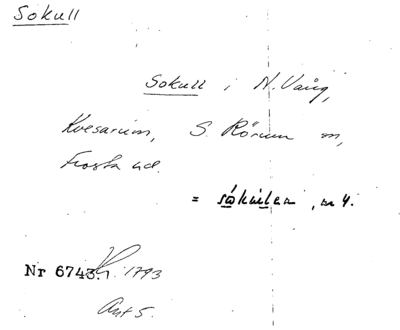 Sokull
Sokull i N. Vång,
Kvesarum, S. Rörum sn,
Frosta hd.
= såkúllen, m 4.
Nr 6743. 1793
Avt 5.